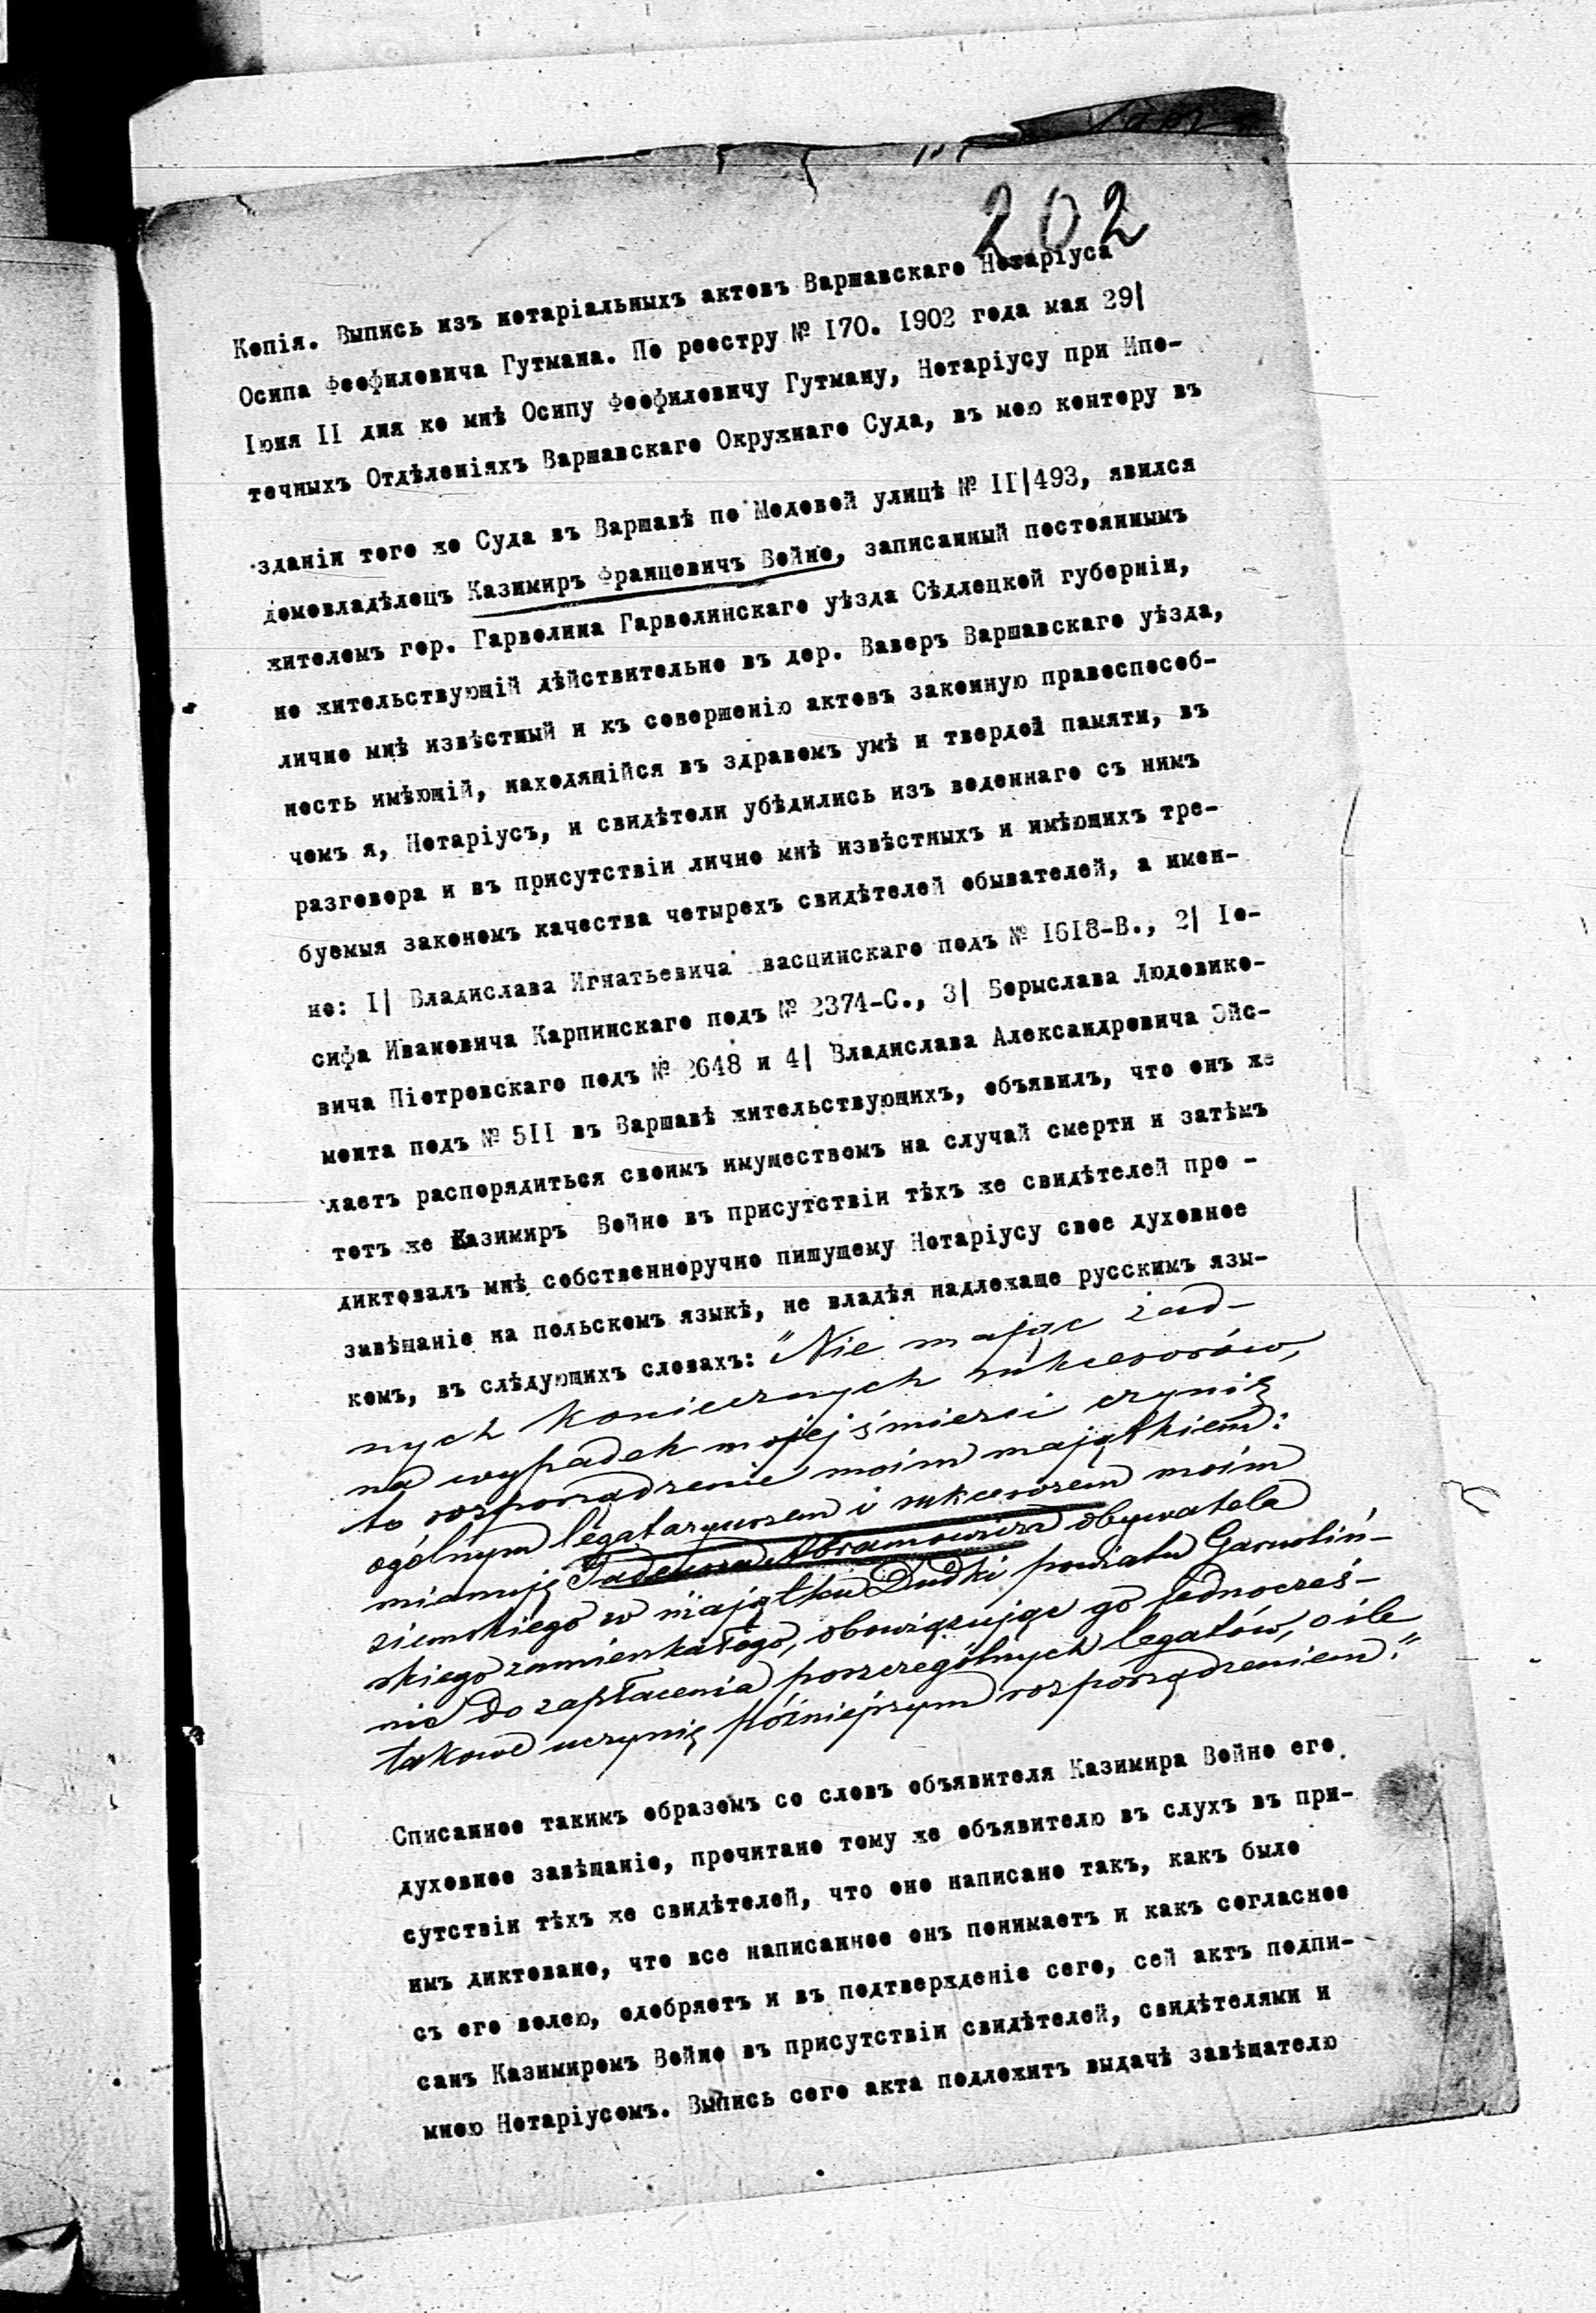 202
Копія. Выпись изъ нотаріальныхъ актовъ Варшавскаго Нотаріуса
Осипа Феофиловича Гутмана. По реестру № I70. I902 года мая 29|
Іюня II дня ко мнѣ Осипу Феофиловичу Гутману, Нотаріусу при Ипо-
течныхъ Отдѣленіяхъ Варшавскаго Окружнаго Суда, въ мою контору въ
зданіи того же Суда въ Варшавѣ по Медовой улицѣ № II|493, явился
домовладѣлецъ Казимиръ Францевичъ Война, записанный постояннымъ
жителемъ гор. Гарволина Гарволинскаго уѣзда Сѣдлецкой губерніи,
но жительствующій дѣйствительно въ дер. Ваверъ Варшавскаго уѣзда,
лично мнѣ извѣстный и къ совершенію актовъ законную правоспособ-
ность имѣющій, находящійся въ здравомъ умѣ и твердой памяти, въ
чемъ я, Нотаріусъ, и свидѣтели убѣдились изъ веденнаго съ нимъ
разговора и въ присутствіи лично мнѣ извѣстныхъ и имѣющихъ тре-
буемыя закономъ качества четырехъ свидѣтелей обывателей, а имен-
но: I| Владислава Игнатьевича васцинскаго подъ № I6I8-В., 2| Іо-
сифа Ивановича Карпинскаго подъ № 2374-С., 3| Борыслава Людовико-
вича Піотровскаго подъ № 2648 и 4| Владислава Александровича Эйс-
монта подъ № 5II въ Варшавѣ жительствующихъ, объявилъ, что онъ же
лаетъ распорядиться своимъ имуществомъ на случай смерти и затѣмъ
тотъ же Казимиръ Войно въ присутствіи тѣхъ же свидѣтелей про -
диктовалъ мнѣ собственноручно пишущему Нотаріусу свое духовное
завѣщаніе на польскомъ языкѣ, не владѣя надлежаще русскимъ язы-
комъ, въ слѣдующихъ словахъ: "Nie mając żad-
nych koniecznych sukcesorów,
na wypadek mojej śmierci czynię
to rozporządzenie moim majątkiem:
ogólnym legataryuszem i sukcesorem moim
mianuję Tadeusza Abramowicza obywatela
ziemskiego w majątku Dudki powiatu Garwoliń-
skiego zamieszkałego, obowiązując go jednocześ-
nie do zapłacenia poszczególnych legatów, o ile
takowe uczynię późniejszym rozporządzeniem."
Списанное такимъ образомъ со словъ объявителя Казимира Войно его
духовное завѣщаніе, прочитано тому же объявителю въ слухъ въ при-
сутствіи тѣхъ же свидѣтелей, что оно написано такъ, какъ было
имъ диктовано, что все написанное онъ понимаетъ и какъ согласное
съ его волею, одобряетъ и въ подтвержденіе сего, сей актъ подпи-
санъ Казимиромъ Войно въ присутствіи свидѣтелей, свидѣтелями и
мною Нотаріусомъ. Выпись сего акта подлежитъ выдачѣ завѣщателю